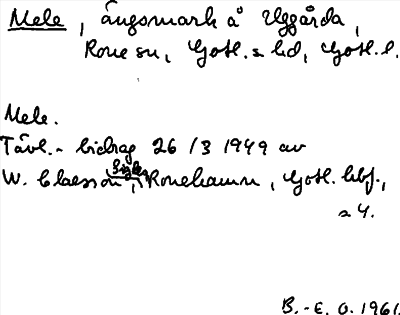 Mele, ängsmark å Uggårda,
Rone sn, Gotl. s hd, Gotl. l.
Mele.
Tävl.-bidrag 26/3 1949 av
W. Claesson, Sigleu, Ronehamn, Gotl. hbf.,
s 4.
B.-E. O. 1961.